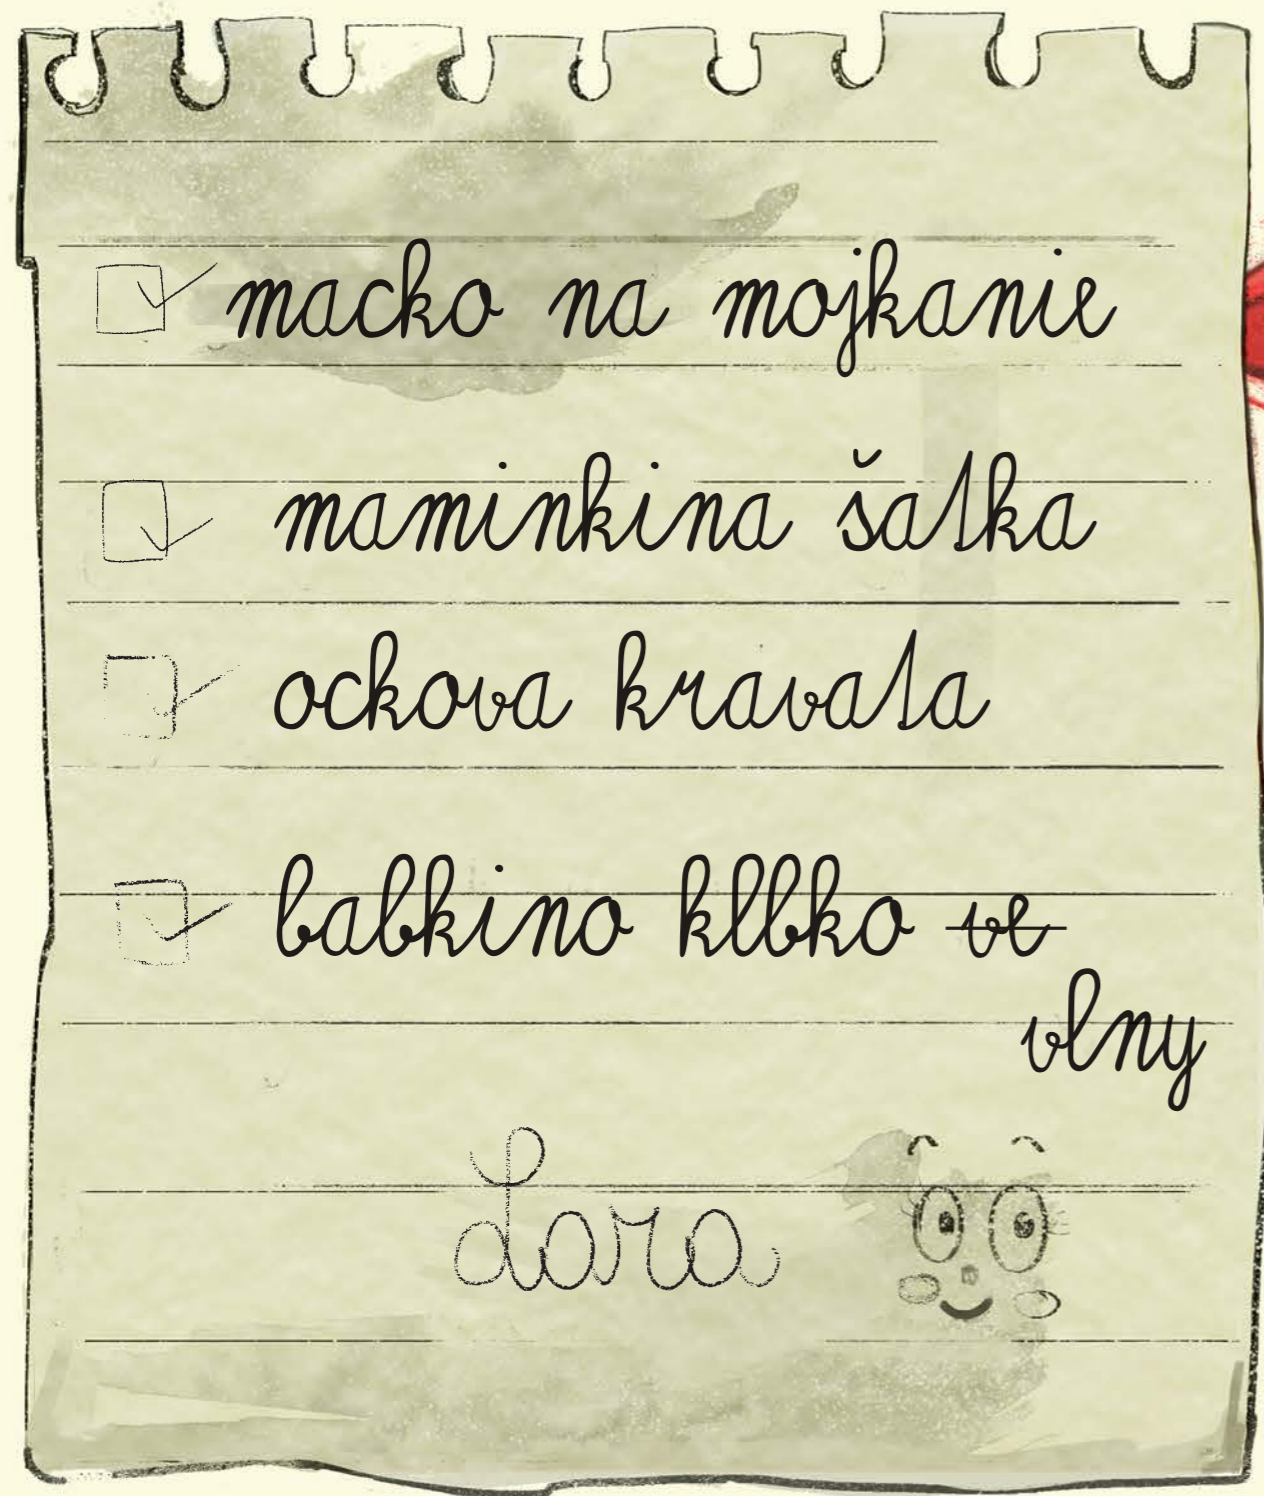 macko na mojkanie
maminkina šatka
ockova kravata
babkino kllbko ve
vlny
Lara